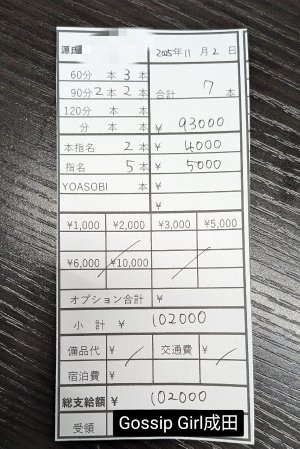 源氏 2025年11月2日
60分 本 3本
90分 2本 2本 合計 7本
120分 本 本
分 本 本 ¥ 93000
本指名 2本 ¥ 4000
指名 5本 ¥ 5000
YOASOBI 本 ¥
¥
¥1,000 ¥2,000 ¥3,000 ¥5,000
¥6,000 ¥10,000
オプション合計 ¥
小計 ¥ 102000
備品代 ¥ 交通費 ¥
宿泊費 ¥
総支給額 ¥ 102000
受領
Gossip Girl成田